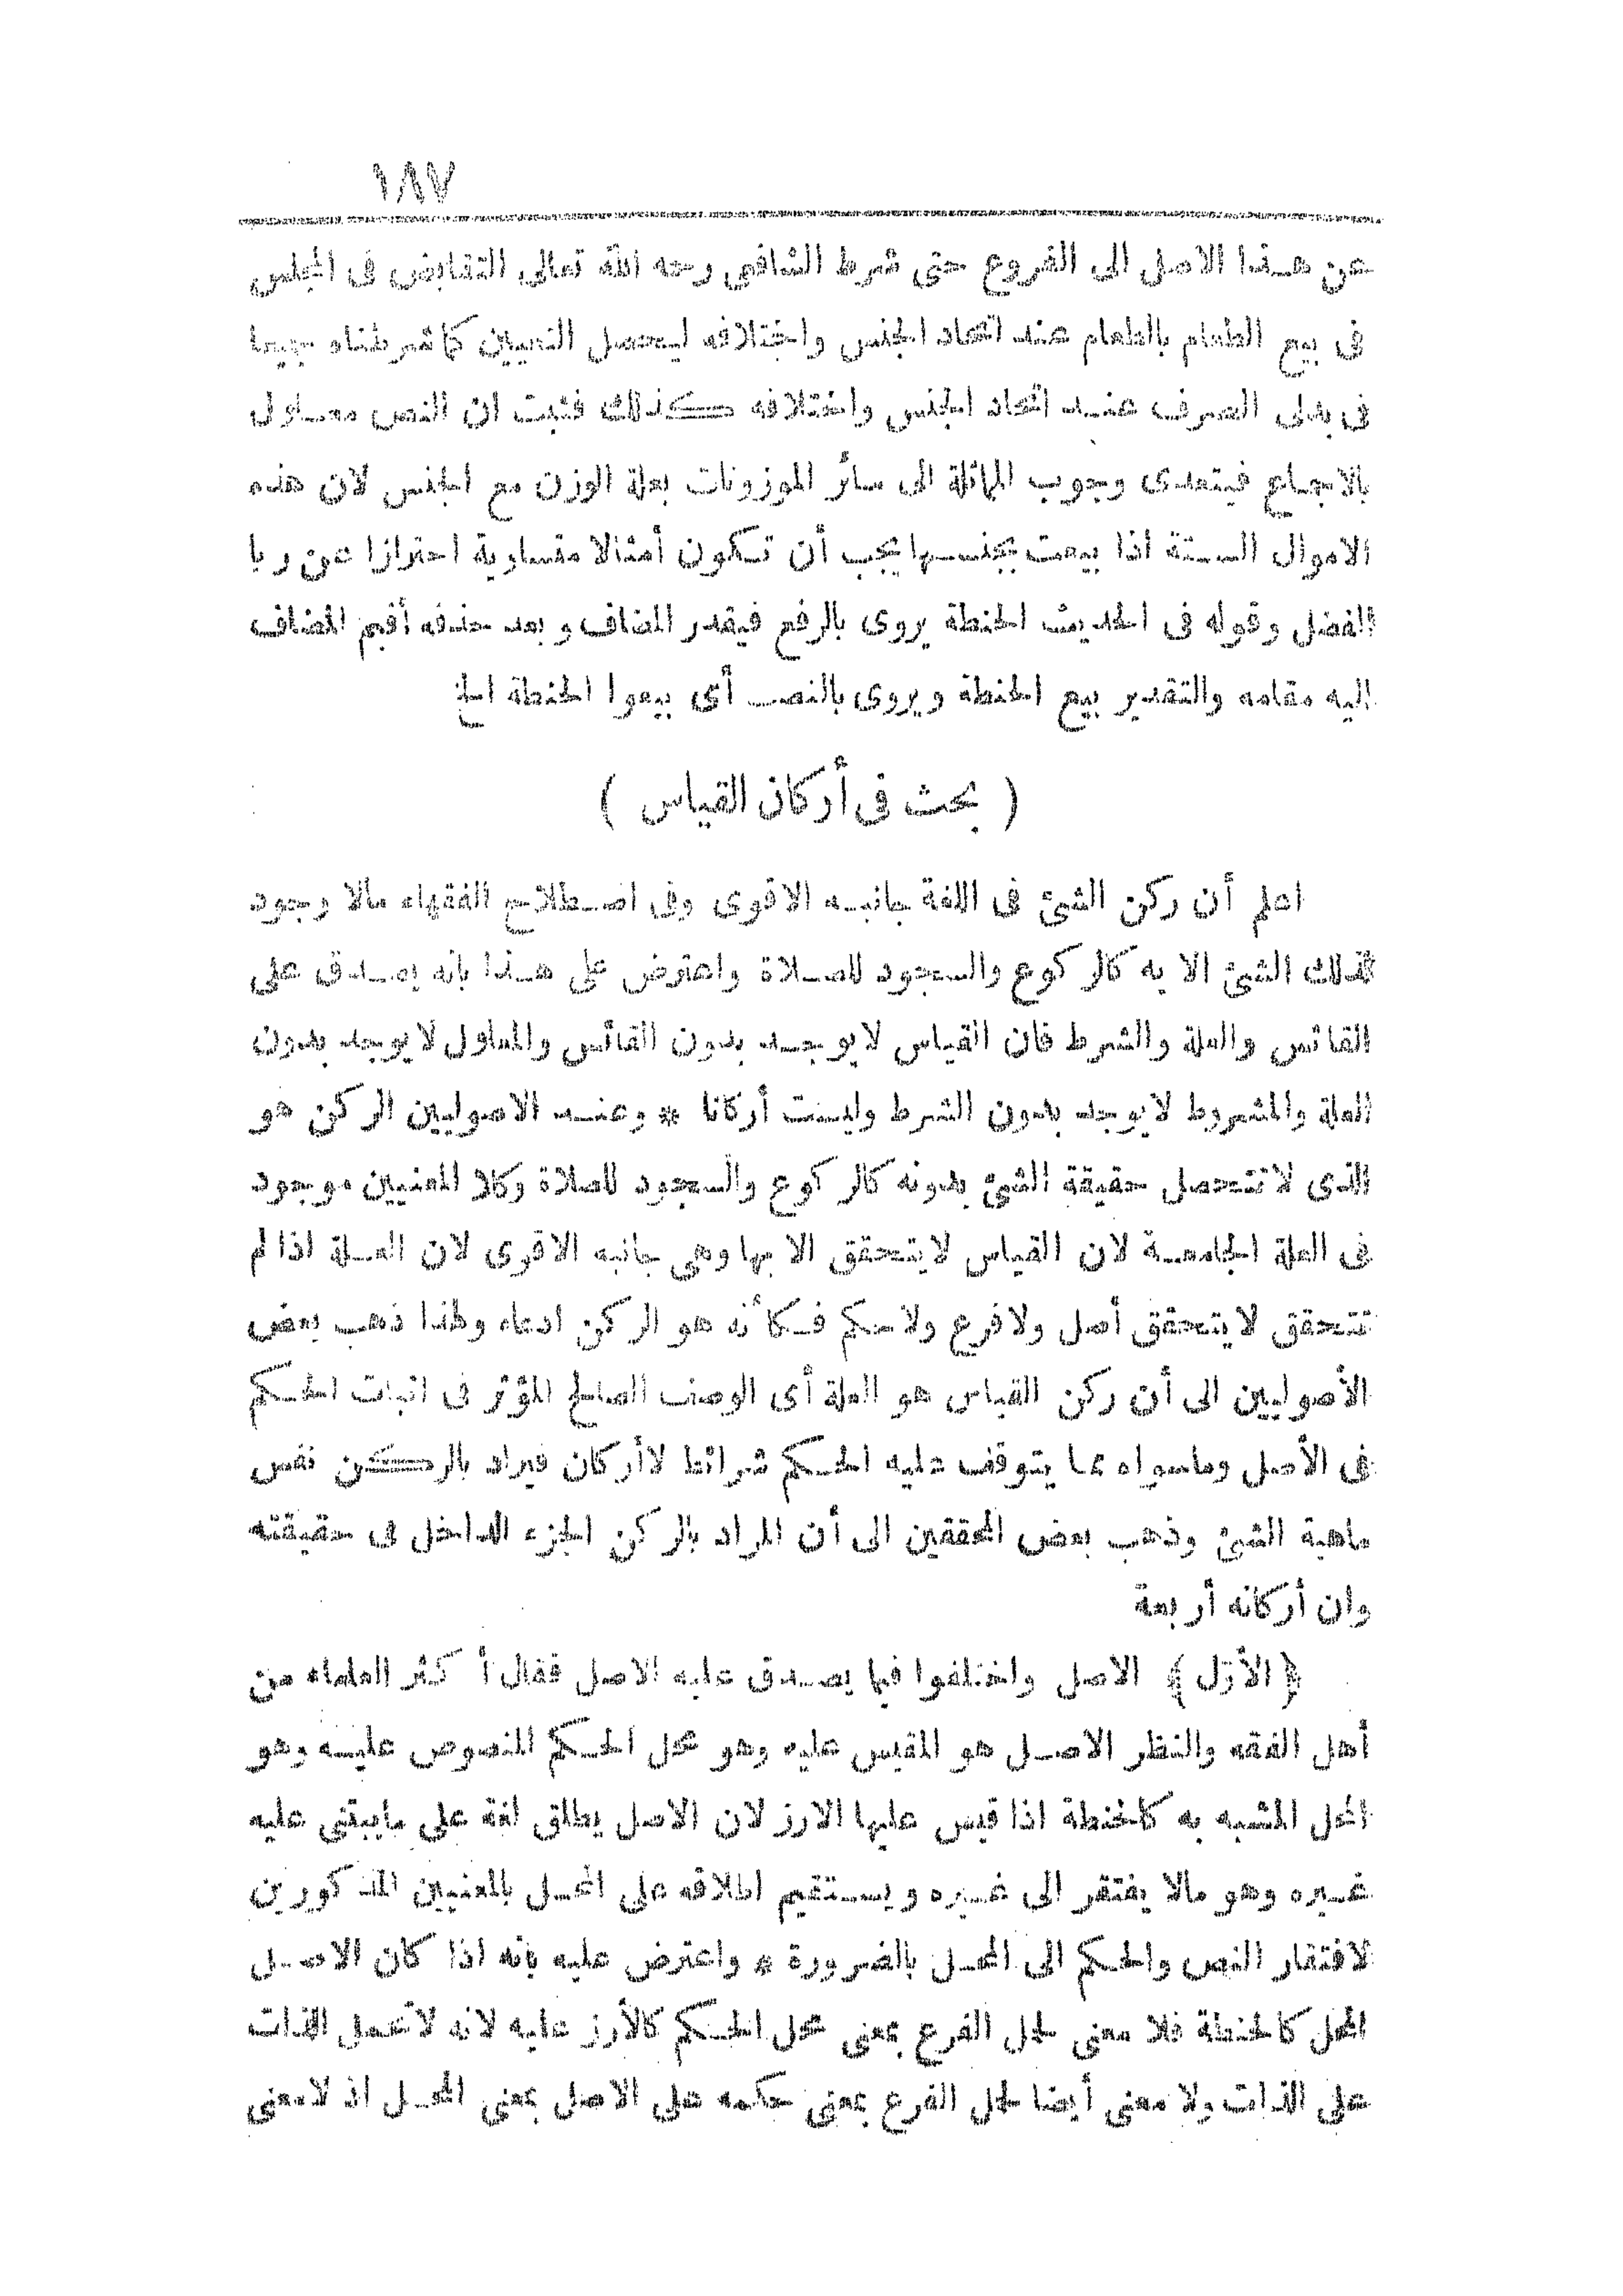 ١٨٧
عن هذا الاصل الى الفروع حتى شرط الشافعى رحمه الله تعالى التقابض فى المجلس
فى بيع الطعام بالطعام عند اتحاد الجنس واختلافه ليحصل التعيين كما شرطناه جميعا
فى بدلى الصرف عند اتحاد الجنس واختلافه كذلك فثبت ان النص معلول
بالاجماع فيتعدى وجوب المماثلة الى سائر الموزونات بعلة الوزن مع الجنس لان هذه
الاموال الستة اذا بيعت بجنسها يجب أن تكون أمثالا متساوية احترازا عن ربا
الفضل وقوله فى الحديث الحنطة يروى بالرفع فيقدر المضاف وبعد حذفه أقيم المضاف
اليه مقامه والتقدير بيع الحنطة ويروى بالنصب أى بيعوا الحنطة الخ
( بحث فى أركان القياس )
اعلم أن ركن الشئ فى اللغة جانبه الاقوى وفى اصطلاح الفقهاء مالا وجود
لذلك الشئ الا به كالركوع والسجود للصلاة واعترض على هذا بانه يصدق على
القائس والعلة والشرط فان القياس لا يوجد بدون القائس والمعلول لا يوجد بدون
العلة والمشروط لا يوجد بدون الشرط وليست أركانا * وعند الاصوليين الركن هو
الذى لا تتحصل حقيقة الشئ بدونه كالركوع والسجود للصلاة وكلا المعنيين موجود
فى العلة الجامعة لان القياس لا يتحقق الا بها وهى جانبه الاقوى لان العلة اذا لم
تتحقق لا يتحقق أصل ولا فرع ولا حكم فكأنه هو الركن ادعاء ولهذا ذهب بعض
الأصوليين الى أن ركن القياس هو العلة أى الوصف الصالح المؤثر فى اثبات الحكم
فى الأصل وما سواه مما يتوقف عليه الحكم شرائط لا أركان فيراد بالركن نفس
ماهية الشئ وذهب بعض المحققين الى أن المراد بالركن الجزء الداخل فى حقيقته
وان أركانه أربعة
﴿ الأوّل ﴾ الاصل واختلفوا فيما يصدق عليه الاصل فقال أكثر العلماء من
أهل الفقه والنظر الاصل هو المقيس عليه وهو محل الحكم المنصوص عليه وهو
المحل المشبه به كالحنطة اذا قيس عليها الارز لان الاصل يطلق لغة على ما يبتنى عليه
غيره وهو مالا يفتقر الى غيره ويستقيم اطلاقه على المحل بالمعنيين المذكورين
لافتقار النص والحكم الى المحل بالضرورة * واعترض عليه بانه اذا كان الاصل
المحل كالحنطة فلا معنى لحمل الفرع بمعنى محل الحكم كالأرز عليه لانه لا تحمل الذات
على الذات ولا معنى أيضا لحمل الفرع بمعنى حكمه على الاصل بمعنى المحل اذ لا معنى